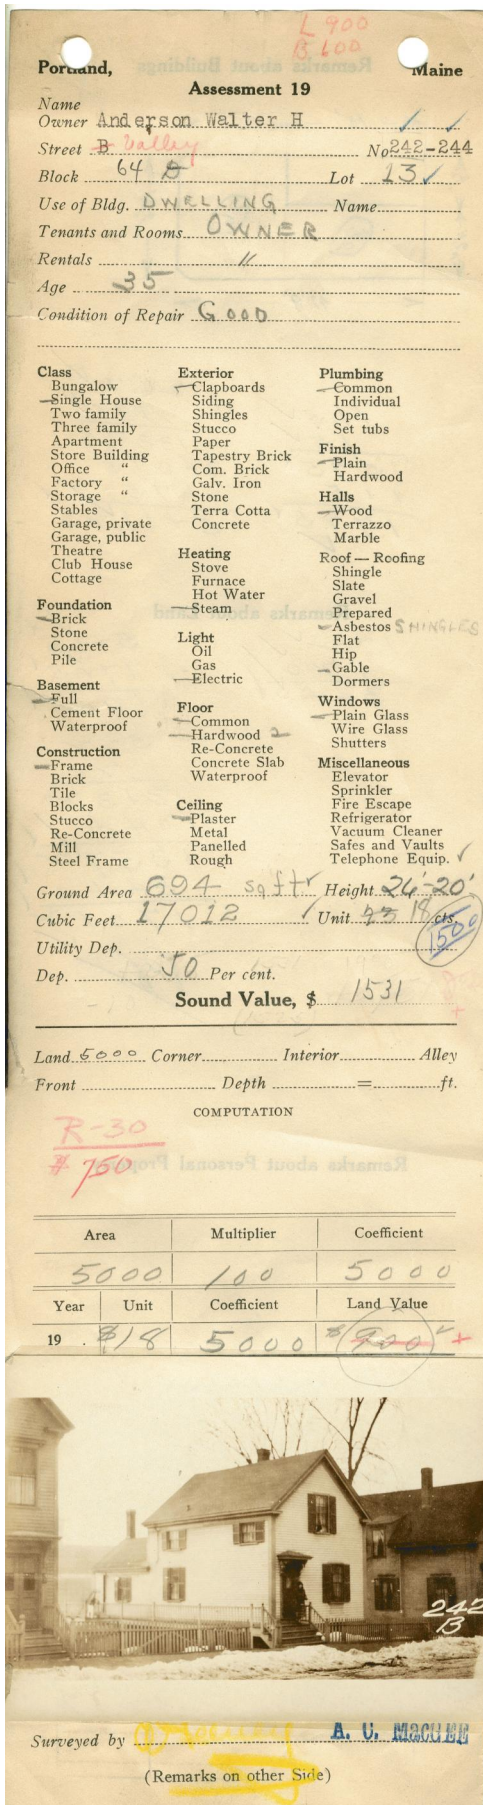 L 900
B 600
Portland, Maine
Assessment 19
Name
Owner Anderson, Walter H
Street B + Valley No 242-244
Block 64 D Lot 13
Use of Bldg. DWELLING Name
Tenants and Rooms OWNER
Rentals "
Age 35
Condition of Repair GOOD
Class
Bungalow
Single House
Two family
Three family
Apartment
Store Building
Office "
Factory "
Storage "
Stables
Garage, private
Garage, public
Theatre
Club House
Cottage
Foundation
Brick
Stone
Concrete
Pile
Basement
Full
Cement Floor
Waterproof
Construction
Frame
Brick
Tile
Blocks
Stucco
Re-Concrete
Mill
Steel Frame
Exterior
Clapboards
Siding
Shingles
Stucco
Paper
Tapestry Brick
Com. Brick
Galv. Iron
Stone
Terra Cotta
Concrete
Heating
Stove
Furnace
Hot Water
Steam
Light
Oil
Gas
Electric
Floor
Common
Hardwood 2
Re-Concrete
Concrete Slab
Waterproof
Ceiling
Plaster
Metal
Panelled
Rough
Plumbing
Common
Individual
Open
Set tubs
Finish
Plain
Hardwood
Halls
Wood
Terrazzo
Marble
Roof — Roofing
Shingle
Slate
Gravel
Prepared
Asbestos SHINGLES
Flat
Hip
Gable
Dormers
Windows
Plain Glass
Wire Glass
Shutters
Miscellaneous
Elevator
Sprinkler
Fire Escape
Refrigerator
Vacuum Cleaner
Safes and Vaults
Telephone Equip. ✓
Ground Area 694 sq ftr Height 26'-20'
Cubic Feet 17012 Unit 23 18 cts.
1500
Utility Dep.
Dep. 50 Per cent.
Sound Value, $ 1531
Land 5000 Corner Interior Alley
Front Depth = ft.
COMPUTATION
R-30
$ 750
Area Multiplier Coefficient
5000 100 5000
Year Unit Coefficient Land Value
19 . $18 5000 $900 +
242
B
Surveyed by A. C. MacGEE
(Remarks on other Side)